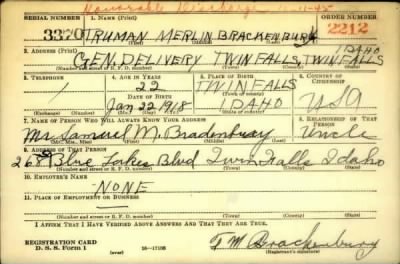 Honorable Discharge 11-45
SERIAL NUMBER 1. Name (Print) ORDER NUMBER
3370 TRUMAN MERLIN BRACKENBURY 2212
(First) (Middle) (Last)
2. Address (Print) IDAHO
GEN. DELIVERY TWIN FALLS, TWIN FALLS
(Number and street or R. F. D. number) (Town) (County) (State)
3. Telephone 4. Age in Years 5. Place of Birth 6. Country of Citizenship
22 TWIN FALLS
Date of Birth (Town or county)
Jan 22 1918 IDAHO USA
(Exchange) (No.) (Mo.) (Day) (Yr.) (State or country)
7. Name of Person Who Will Always Know Your Address 8. Relationship of That Person
Mr Samuel M. Bradenbury Uncle
(Mr., Mrs., Miss) (First) (Middle) (Last)
9. Address of That Person
268 Blue Lakes Blvd Twin Falls Idaho
(Number and street or R. F. D. number) (Town) (County) (State)
10. Employer's Name
NONE
11. Place of Employment or Business
(Number and street or R. F. D. number) (Town) (County) (State)
I Affirm That I Have Verified Above Answers and That They Are True.
REGISTRATION CARD
D. S. S. Form 1 (over) 16—17105 T M Brackenbury
(Registrant's signature)